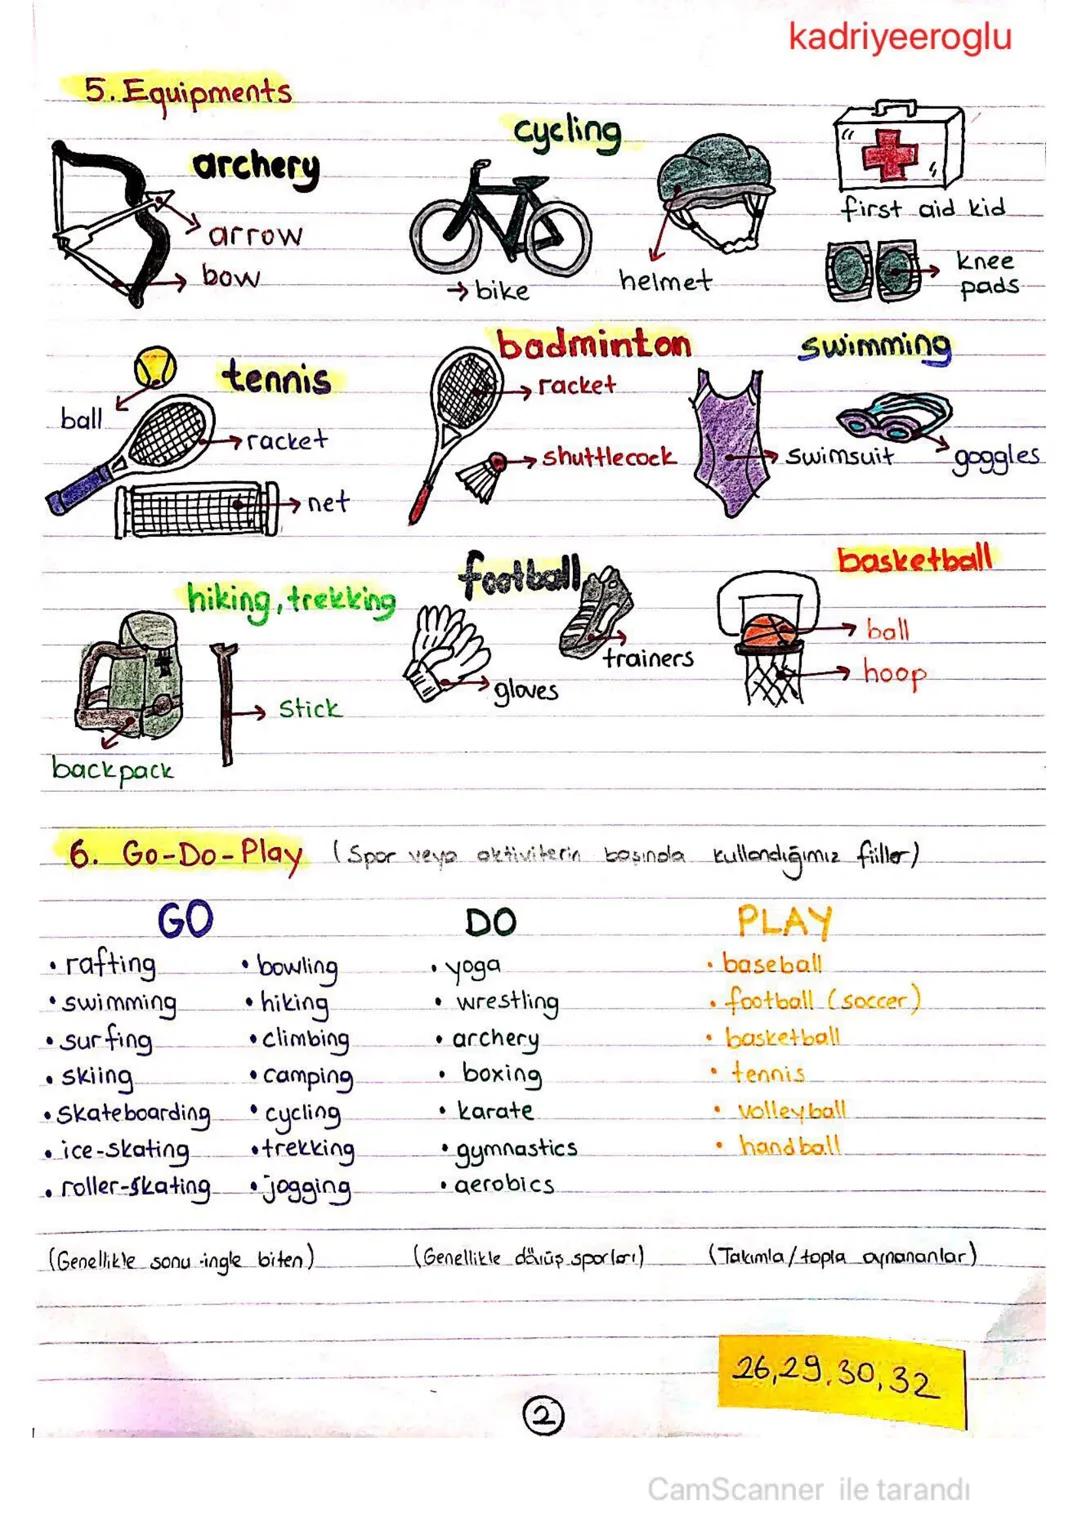 kadriyeeroglu
5. Equipments
archery
arrow
bow
cycling
bike
helmet
first aid kid
knee
pads
tennis
ball
racket
net
badminton
racket
shuttlecock
swimming
swimsuit
goggles
hiking, trekking
stick
backpack
football
trainers
gloves
basketball
ball
hoop
6. Go-Do-Play (Spor veya aktiviterin başında kullandığımız fiiller)
GO DO PLAY
• rafting • bowling • yoga • baseball
• swimming • hiking • wrestling • football (soccer)
• surfing • climbing • archery • basketball
• skiing • camping • boxing • tennis
• skateboarding • cycling • karate • volleyball
• ice-skating • trekking • gymnastics • handball
• roller-skating • jogging • aerobics
(Genellikle sonu -ingle biten) (Genellikle dövüş sporları) (Takımla/topla oynananlar)
26,29,30,32
2
CamScanner ile tarandı